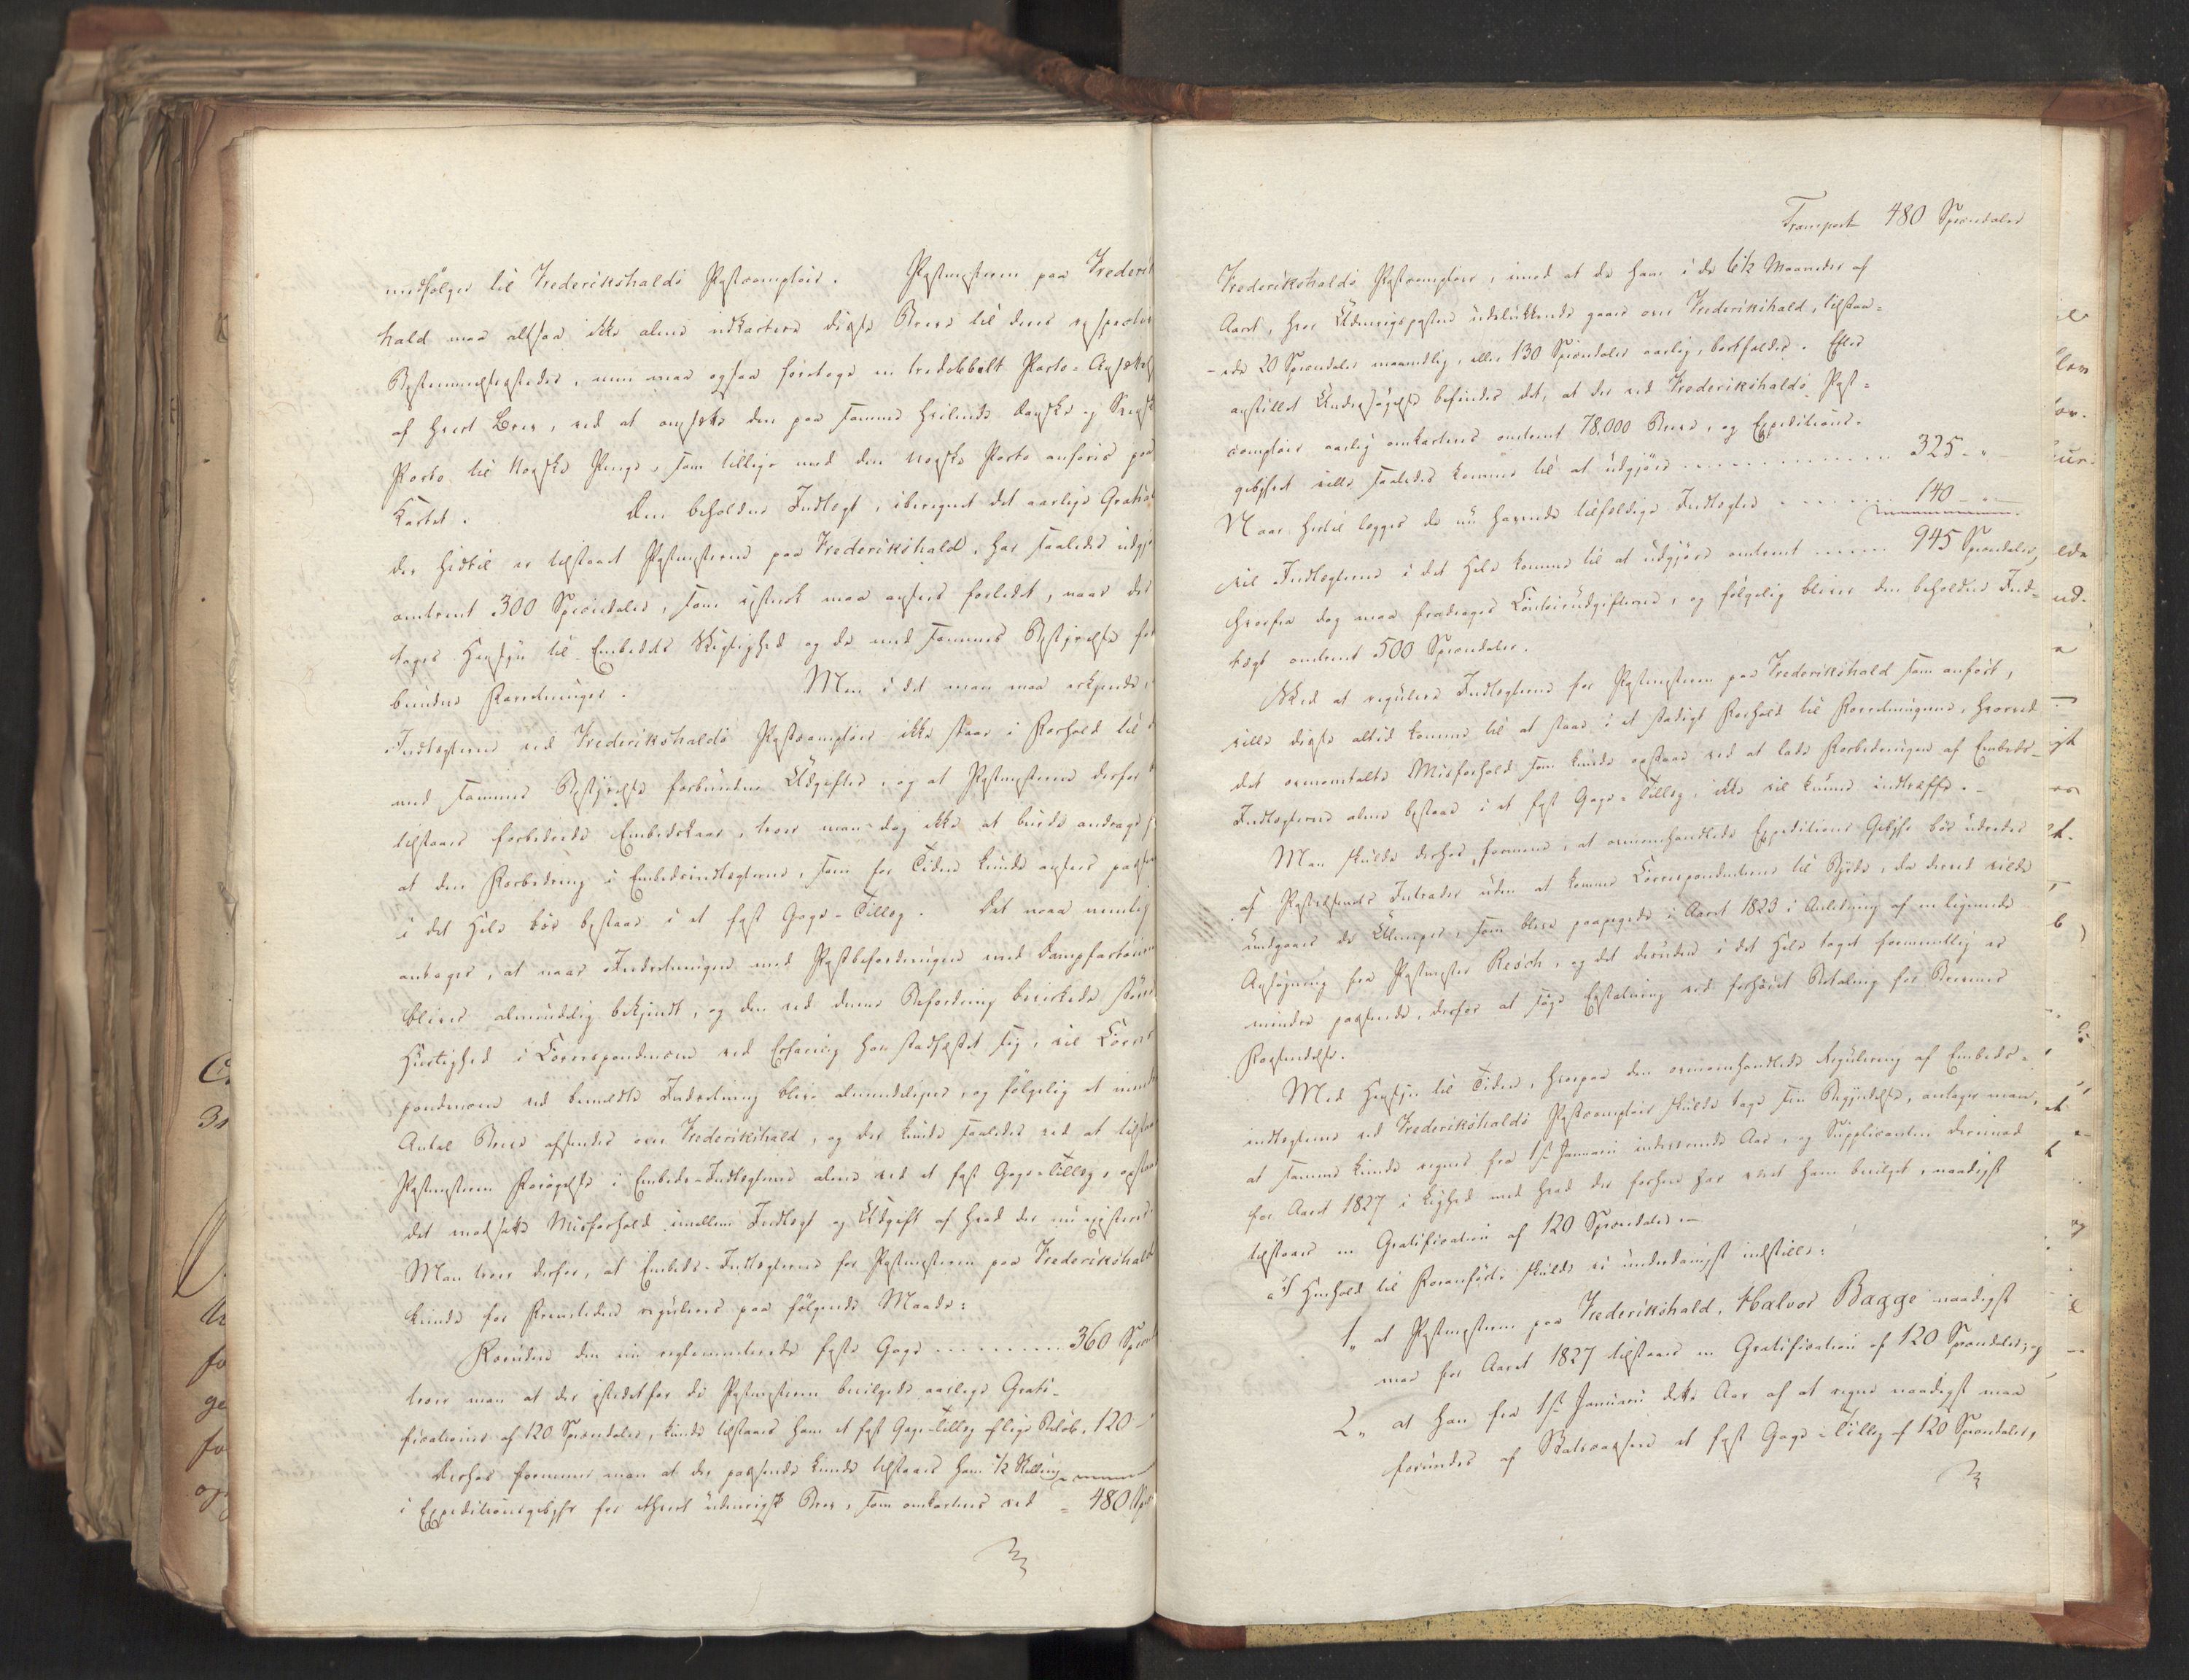 medfølger til Frederikshalds Postcomptoir. Postmesteren paa Frederiks
hald maa altsaa ikke alene udkartere disse Breve til deres respective
Bestemmelsessteder, men maa ogsaa foretage en tredobbelt Porto-Ansættelse
af hvert Brev, ved at omsætte den paa samme hvilende danske og svenske
Porto til Norske Penge, som tillige med den norske Porto anføres paa
Kartet. Den beholdne Indtægt, iberegnet det aarlige Gratial
der hidtil er tilstaaet Postmesteren paa Frederikshald, har saaledes udgjort
omtrent 300 Speciedaler, som vistnok maa ansees for lidet, naar der
tages Hensyn til Embedets Vigtighed og de med sammes Bestyrelse for-
bundne Forretninger. Men i det man maa erkjende, at
Indtægterne ved Frederikshalds Postcomptoir ikke staae i Forhold til de
med sammes Bestyrelse forbundne Udgifter, og at Postmesteren derfor bør
tilstaaes forbedrede Embedskaar, troer man dog ikke at burde andrage paa
at den Forbedring i Embedsindtægterne, som for Tiden kunde ansees passende
i det Hele bør bestaae i et fast Gage-Tillæg. Det maa nemlig
antages, at naar Indretningen med Postbefordringen med Dampfartøierne
bliver almindelig bekjendt, og den ved denne Befordring bevirkede større
Hurtighed i Correspondencen ved Erfaring har stadfæstet sig, vil Corres-
pondencen ved bemeldte Indretning blive almindeligere, og følgelig et mindre
Antal Breve afsendes over Frederikshald, og der kunde saaledes ved at tilstaae
Postmesteren Forøgelse i Embeds-Indtægterne alene ved et fast Gage-Tillæg, opstaae
det modsatte Misforhold imellem Indtægt og Udgift af hvad der nu existerer.
Man troer derfor, at Embeds-Indtægterne for Postmesteren paa Frederikshald
kunde for Fremtiden reguleres paa følgende Maade:
Foruden den nu reglementerede faste Gage ......... 360 Spec
troer man at der istedetfor de Postmesteren bevilgede aarlige Grati-
ficationer af 120 Speciedaler, kunde tilstaaes ham et fast Gage-Tillæg af lige Beløb, 120 -
Derhos formener man at der passende kunde tilstaaes ham ½ Skilling
i Expeditionsgebyhr for ethvert udenrigsk Brev, som omkarteres ved = 480 Spd
Transport 480 Speciedaler
Frederikshalds Postcomptoir, imod at de ham i de 6½ Maaneder af
Aaret, hvor Udenrigsposten udelukkende gaaer over Frederikshald, tilstaa-
ede 20 Speciedaler maanedlig, eller 130 Speciedaler aarlig, bortfalder. Efter
anstillet Undersøgelse befindes det, at der ved Frederikshalds Post-
comptoir aarlig omkarteres omtrent 78,000 Breve, og Expeditions-
gebyhret ville saaledes komme til at udgjøre .............. 325 - " -
Naar hertil lægges de nu havende tilfældige Indtægter ........ 140 - " -
vil Indtægterne i det Hele komme til at udgjøre omtrent ...... 945 Speciedaler,
hvorfra dog maa fradrages Contoirudgifterne, og følgelig bliver den beholdne Ind-
tægt omtrent 500 Speciedaler.
Ved at regulere Indtægterne for Postmesteren paa Frederikshald som anført,
ville disse altid komme til at staae i et stadigt Forhold til Forretningerne, hvorved
det ovenomtalte Misforhold som kunde opstaae ved at lade Forbedringen af Embeds-
Indtægterne alene bestaae i et fast Gage-Tillæg, ikke vil kunne indtræffe.
Man skulde derhos formene, at ovenomhandlede Expeditions Gebyhr bør udredes
af Postvæsenets Intrader uden at komme Correspondenterne til Byrde, da derved vilde
undgaaes de Ulemper, som bleve paapegede i Aaret 1823 i Anledning af en lignende
Ansøgning fra Postmester Resch, og det desuden i det Hele taget formeentlig er
mindre passende, derfor at søge Erstatning ved forhøiet Betaling for Brevenes
Forsendelse.
Med Hensyn til Tiden, hvorpaa den ovenomhandlede Regulering af Embeds-
indtægterne ved Frederikshalds Postcomptoir skulde tage sin Begyndelse, antager man,
at samme kunde regnes fra 1ste Januarii indeværende Aar, og Supplicanten derimod
for Aaret 1827 i Lighed med hvad der forhen har været ham bevilget, naadigst
tilstaaes en Gratification af 120 Speciedaler. -
I Henhold til Foranførte skulde vi underdanigst indstille:
1, at Postmesteren paa Frederikshald, Halvor Bagge naadigst
maa for Aaret 1827 tilstaaes en Gratification af 120 Speciedaler; og
2, at han fra 1ste Januarii dette Aar af at regne naadigst maa
forundes af Statscassen et fast Gage-Tillæg af 120 Speciedaler,